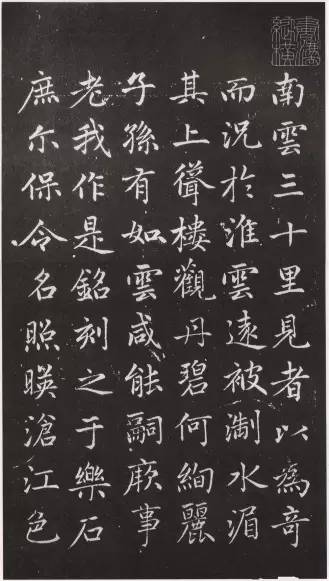 南雲三十里見者以為奇
而況於淮雲遠被淛水湄
其上聳樓觀丹碧何絢麗
子孫有如雲咸能嗣厥事
老我作是銘刻之于樂石
庶尓保令名照暎滄江色